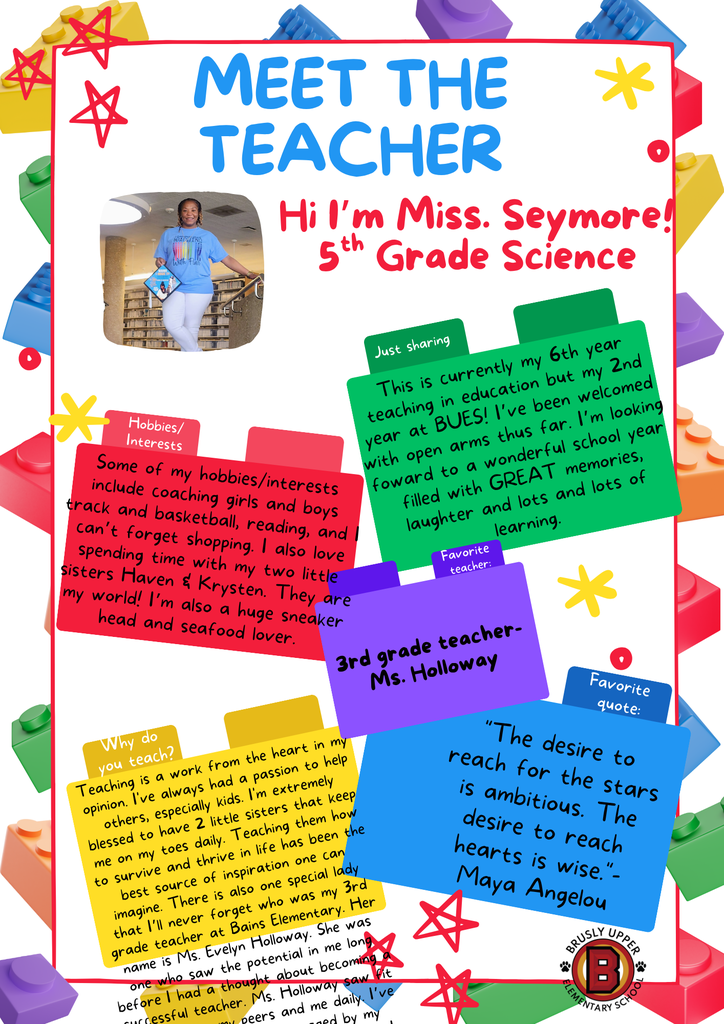 MEET THE
TEACHER
Hi I'm Miss. Seymore!
5th Grade Science
Just sharing
This is currently my 6th year
teaching in education but my 2nd
year at BUES! I've been welcomed
with open arms thus far. I'm looking
foward to a wonderful school year
filled with GREAT memories,
laughter and lots and lots of
learning.
Hobbies/
Interests
Some of my hobbies/interests
include coaching girls and boys
track and basketball, reading, and I
can't forget shopping. I also love
spending time with my two little
sisters Haven & Krysten. They are
my world! I'm also a huge sneaker
head and seafood lover.
Favorite
teacher:
3rd grade teacher-
Ms. Holloway
Favorite
quote:
"The desire to
reach for the stars
is ambitious. The
desire to reach
hearts is wise."-
Maya Angelou
Why do
you teach?
Teaching is a work from the heart in my
opinion. I've always had a passion to help
others, especially kids. I'm extremely
blessed to have 2 little sisters that keep
me on my toes daily. Teaching them how
to survive and thrive in life has been the
best source of inspiration one can
imagine. There is also one special lady
that I'll never forget who was my 3rd
grade teacher at Bains Elementary. Her
name is Ms. Evelyn Holloway. She was
one who saw the potential in me long
before I had a thought about becoming a
successful teacher. Ms. Holloway saw fit
my peers and me daily. I've
by my
BRUSLY UPPER
B
ELEMENTARY SCHOOL